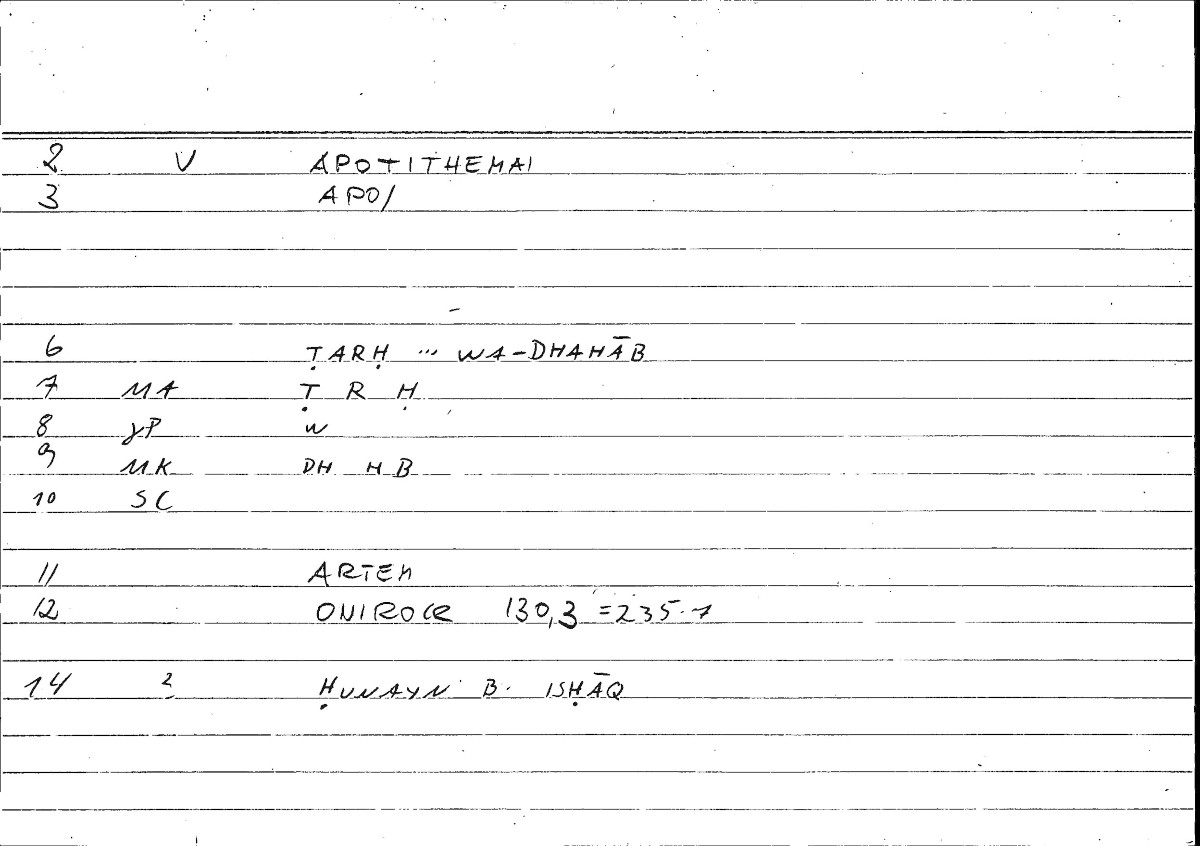 2 V APOTITHEMAI
3 APO/
6 ṬARḤ ... WA-DHAHĀB
7 MA Ṭ R Ḥ
8 γP W
9 MK DH H B
10 SC
11 ARTEM
12 ONIROCR 130,3 =235.7
14 2 ḤUNAYN B. ISḤĀQ